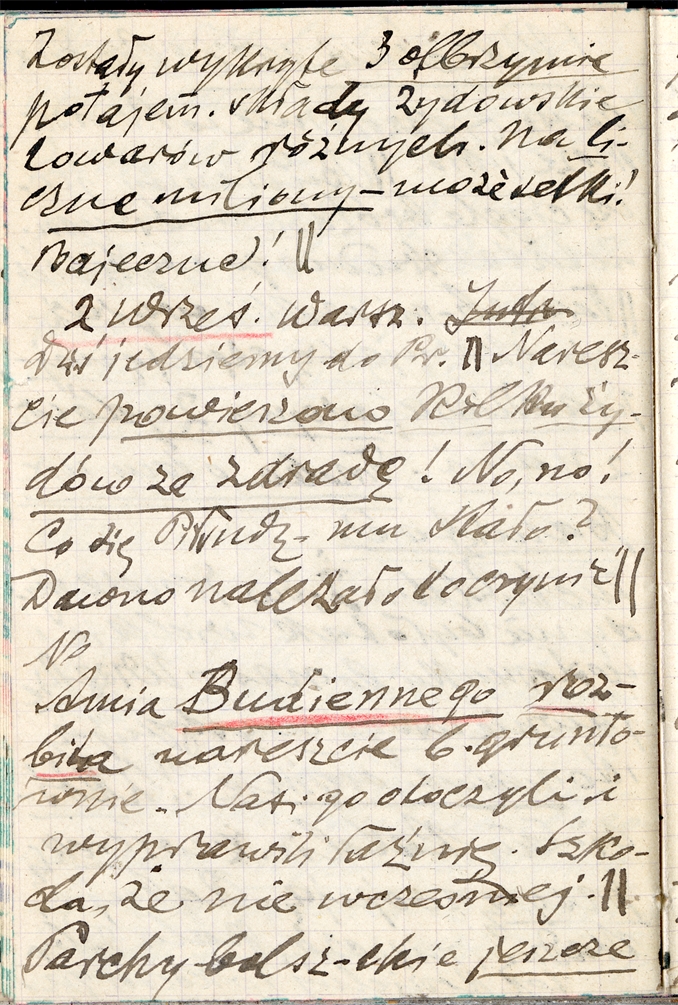 Zostały wykryte 3 olbrzymie
potajem. składy żydowskie
towarów różnych. Na li-
czne miliony – może setki!
Bajeczne! ||
2 wrześ. Warsz. Jutr
Dziś jedziemy do Kr. || Naresz-
cie powieszono kilku ży-
dów za zdradę! No, no!
Co się Piłsudz-mu stało?
Dawno należało to czynić ||
No
Amia Budiennego roz-
bita nareszcie b. grunto-
wnie. Nasi go otoczyli i
wyprawili łaźnię. Szko-
da, że nie wcześniej. ||
Parchy bolsz-ckie jeszcze